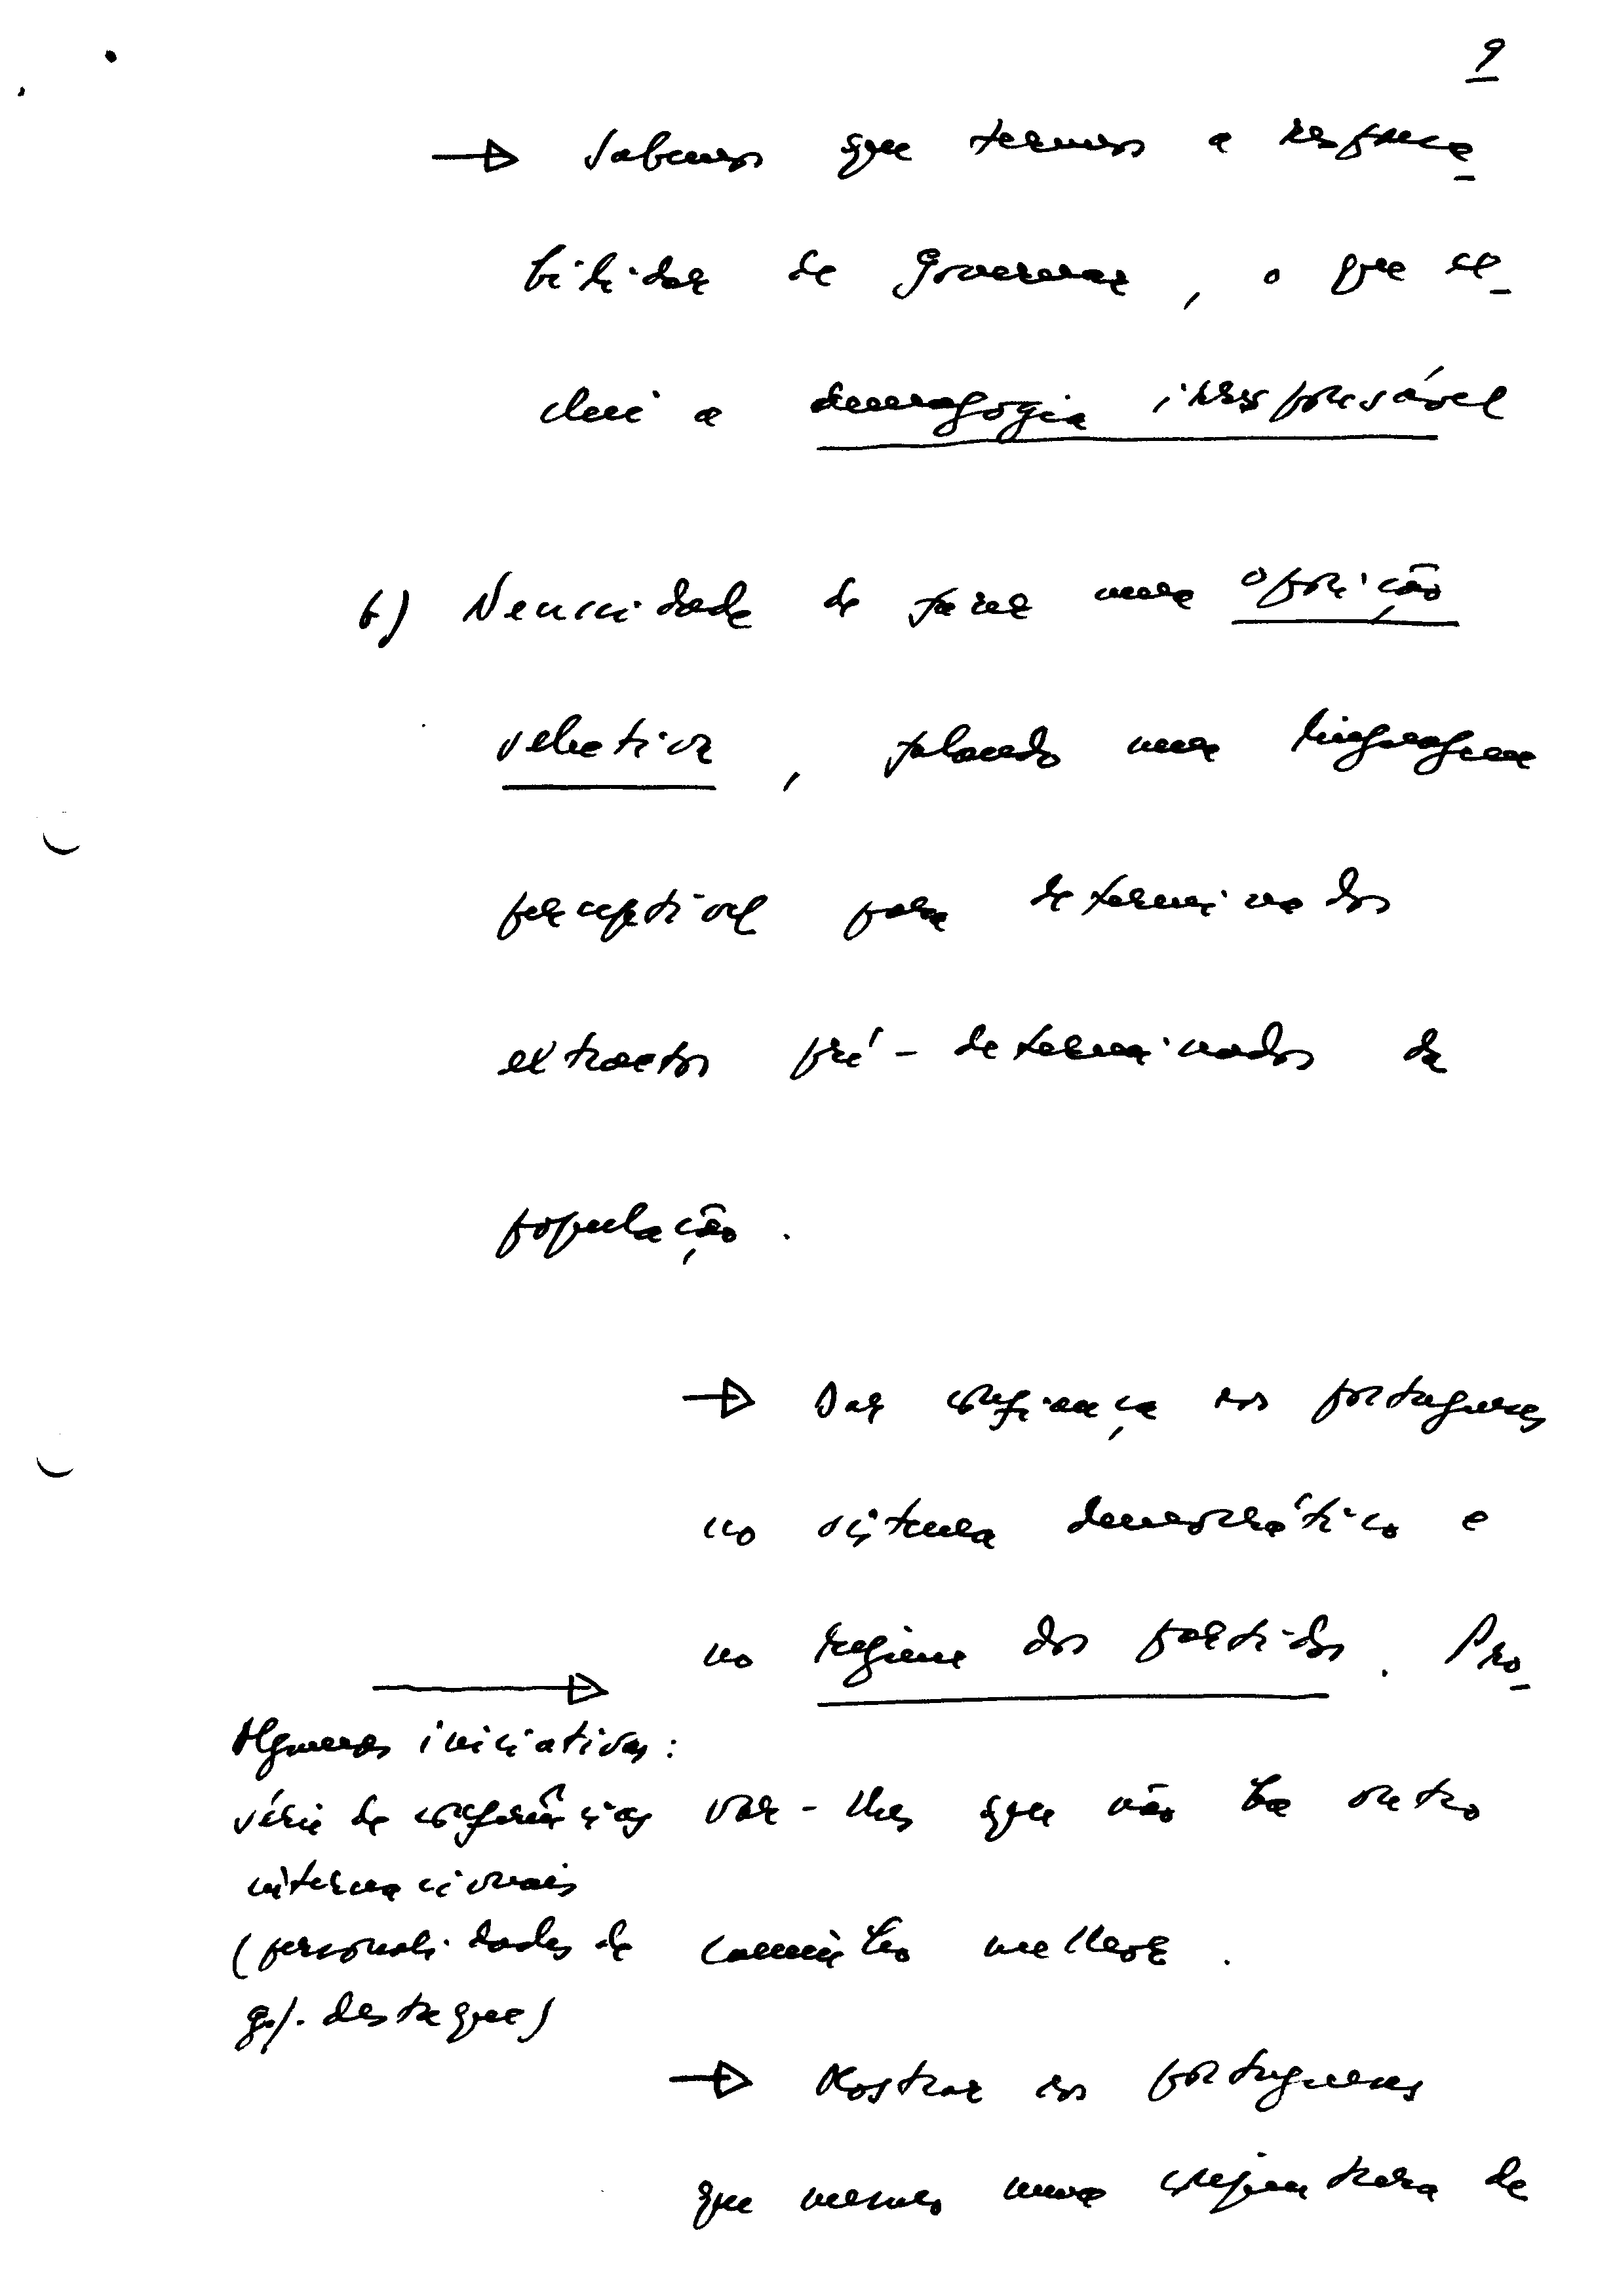 9
→ Sabemos que teremos a responsa-
bilidade de governar, o que ex-
clui a demagogia irresponsável
b) Necessidade de fazer uma oposição
selectiva, falando uma linguagem
perceptível para determinados
extractos pré-determinados da
população.
→ Dar confiança aos portugueses
no sistema democrático e
no regime dos partidos. Pro-
→
Algumas iniciativas:
série de conferências
internacionais
(personalidades de
gr. destaque)
var-lhes que não há outro
caminho melhor.
→ Mostrar aos portugueses
que mesmo numa conjuntura de